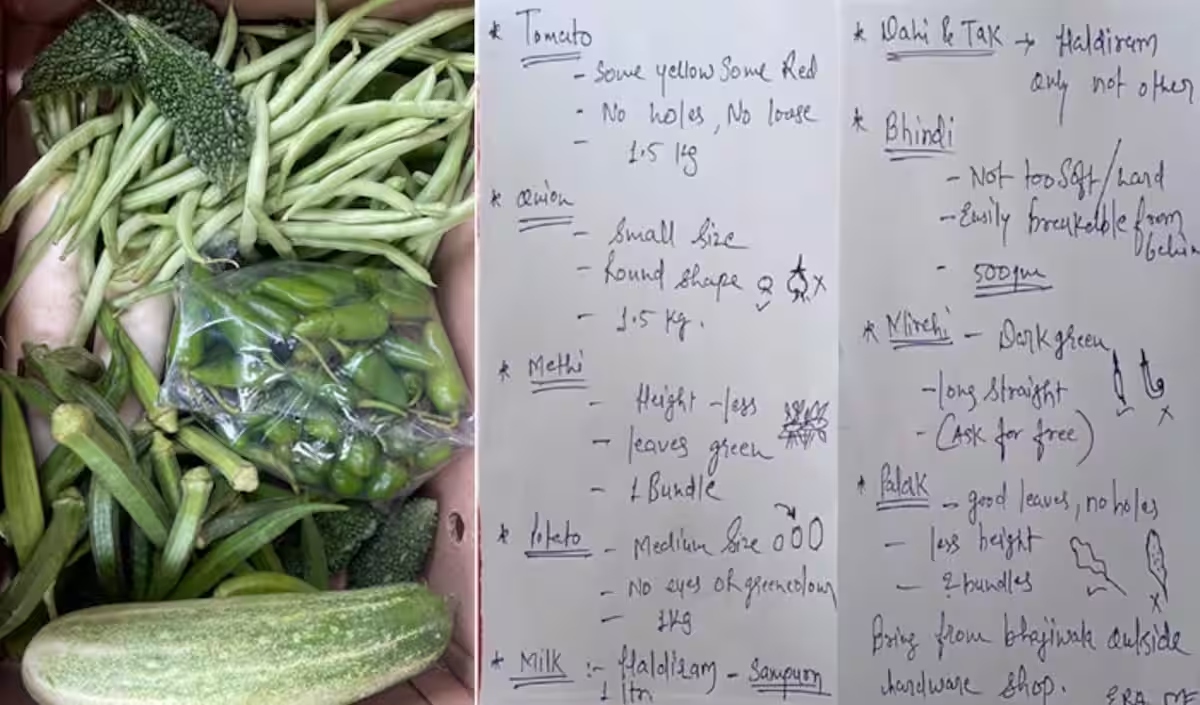 * Tomato
- Some yellow Some Red
- No holes, No loose
- 1.5 kg
* Onion
- Small size
- Round shape
- 1.5 kg.
* Methi
- Height - less
- leaves green
- 1 Bundle
* Potato - Medium Size
- No eyes or greencolour
- 1kg
* Milk :- Haldiram - Sampurn
1 ltr
* Dahi & Tak → Haldiram
only not other
* Bhindi
- Not too Soft/hard
- Easily breakable from
behin
- 500gm
* Mirchi - Dark green
- long straight
- (Ask for free)
* Palak - good leaves, no holes
- less height
- 2 bundles
Bring from bhajiwala outside
hardware shop.